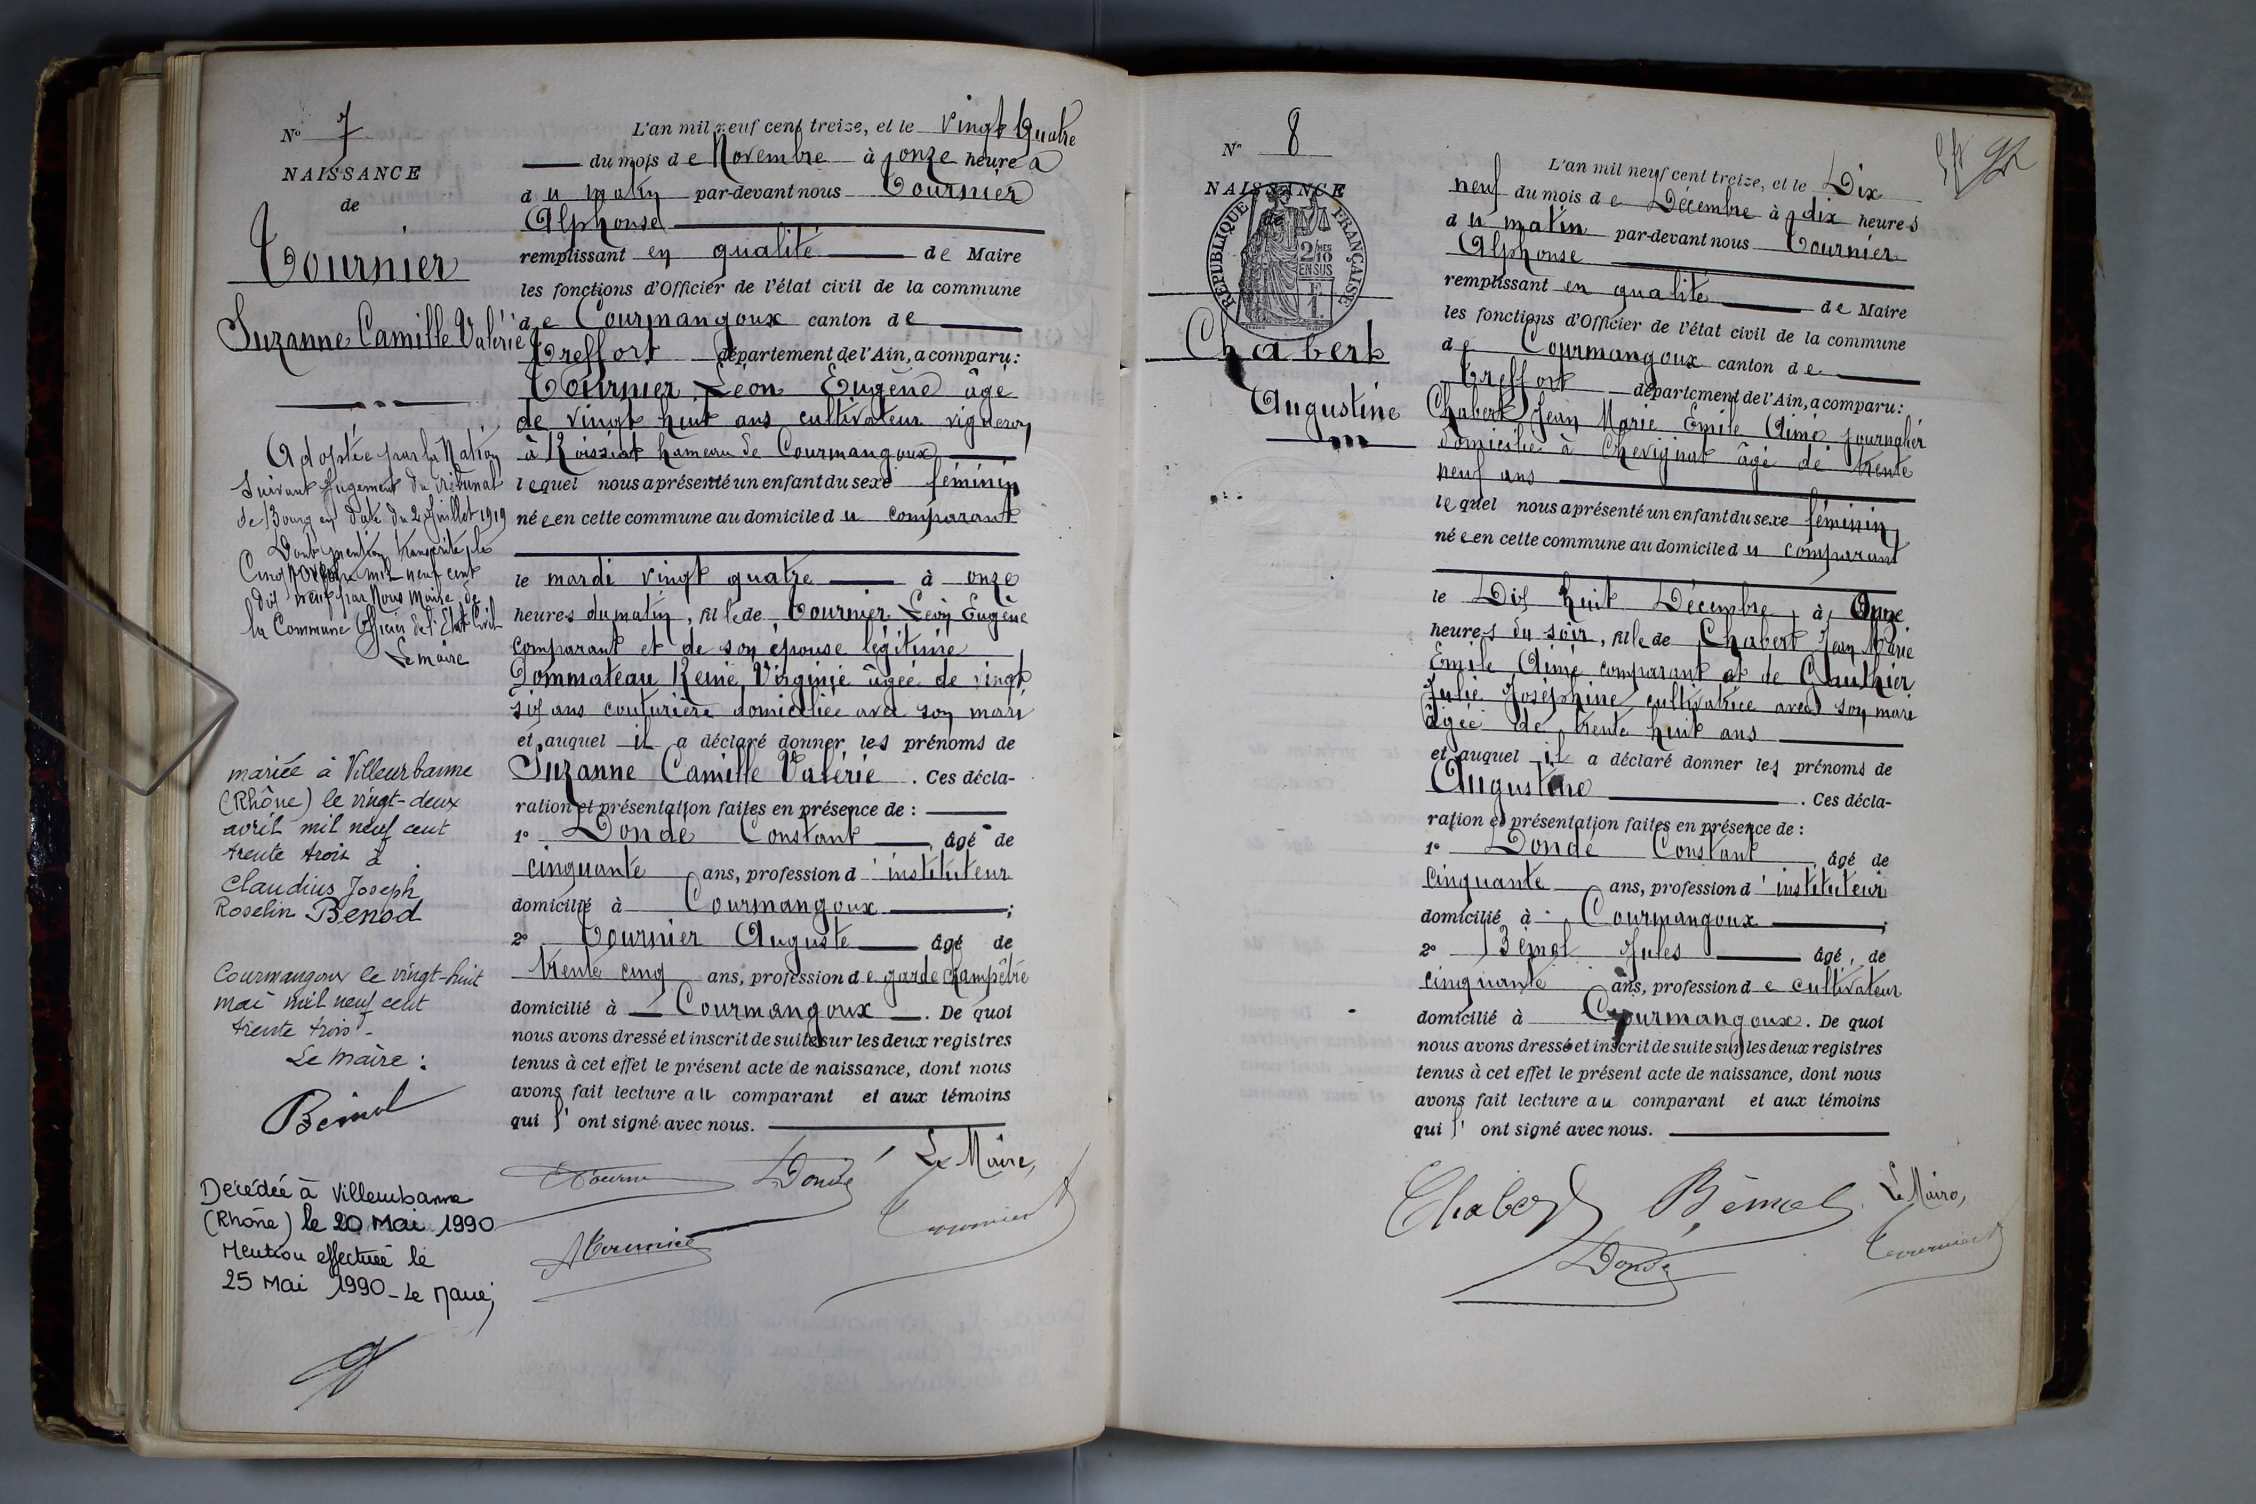 N° 7
NAISSANCE
de
Tournier
Suzanne Camille Valérie
Adoptée par la Nation
suivant Jugement du tribunal
de Bourg en date du 2 Juillet 1919
Dont mention transcrite le
Cinq mil neuf cent
dix neuf par Nous Maire de
la Commune Officier de l'Etat Civil
Le maire
mariée à Villeurbanne
(Rhône) le vingt-deux
avril mil neuf cent
trente trois à
Claudius Joseph
Roselin Benod
Courmangoux le vingt-huit
mai mil neuf cent
trente trois -
Le maire :
Bémol
Décédée à Villeurbanne
(Rhône) le 20 Mai 1990
Mention effectuée le
25 Mai 1990 - Le Maire,
L'an mil neuf cent treize, et le vingt Quatre
du mois de Novembre à onze heures
du matin par-devant nous Tournier
Alphonse
remplissant en qualité de Maire
les fonctions d'Officier de l'état civil de la commune
de Courmangoux canton de
Treffort département de l'Ain, a comparu :
Tournier Léon Eugène âgé
de vingt huit ans cultivateur vigneron
à Roissiat hameau de Courmangoux
lequel nous a présenté un enfant du sexe féminin
née en cette commune au domicile du comparant
le mardi vingt quatre à onze
heures du matin, fille de Tournier Léon Eugène
comparant et de son épouse légitime
Dommateau Reine Virginie âgée de vingt
six ans couturière domiciliée avec son mari
et auquel il a déclaré donner les prénoms de
Suzanne Camille Valérie . Ces décla-
ration et présentation faites en présence de :
1° Dondé Constant , âgé de
cinquante ans, profession d'instituteur
domicilié à Courmangoux ;
2° Tournier Auguste âgé de
trente cinq ans, profession de garde champêtre
domicilié à Courmangoux . De quoi
nous avons dressé et inscrit de suite sur les deux registres
tenus à cet effet le présent acte de naissance, dont nous
avons fait lecture au comparant et aux témoins
qui l'ont signé avec nous.
Le Maire,
Dondé
ATournier
Tournier
N° 8
NAISSANCE
de
RÉPUBLIQUE FRANÇAISE
2/10 MES
EN SUS
Chabert
Augustine
L'an mil neuf cent treize, et le Dix
neuf du mois de Décembre à dix heures
du matin par-devant nous Tournier
Alphonse
remplissant en qualité de Maire
les fonctions d'Officier de l'état civil de la commune
de Courmangoux canton de
Treffort département de l'Ain, a comparu :
Chabert Jean Marie Emile Aimé journalier
domicilié à Chevignat âgé de trente
neuf ans
lequel nous a présenté un enfant du sexe féminin
née en cette commune au domicile du comparant
le Dix huit Décembre à Onze
heures du soir, fille de Chabert Jean Marie
Emile Aimé comparant et de Gauthier
Julie Joséphine cultivatrice avec son mari
âgée de trente huit ans
et auquel il a déclaré donner les prénoms de
Augustine . Ces décla-
ration et présentation faites en présence de :
1° Dondé Constant , âgé de
cinquante ans, profession d'instituteur
domicilié à Courmangoux ;
2° Bémol Jules âgé, de
cinquante ans, profession de cultivateur
domicilié à Courmangoux. De quoi
nous avons dressé et inscrit de suite sur les deux registres
tenus à cet effet le présent acte de naissance, dont nous
avons fait lecture au comparant et aux témoins
qui l'ont signé avec nous.
Chabert Bémol Le Maire,
Dondé Tournier